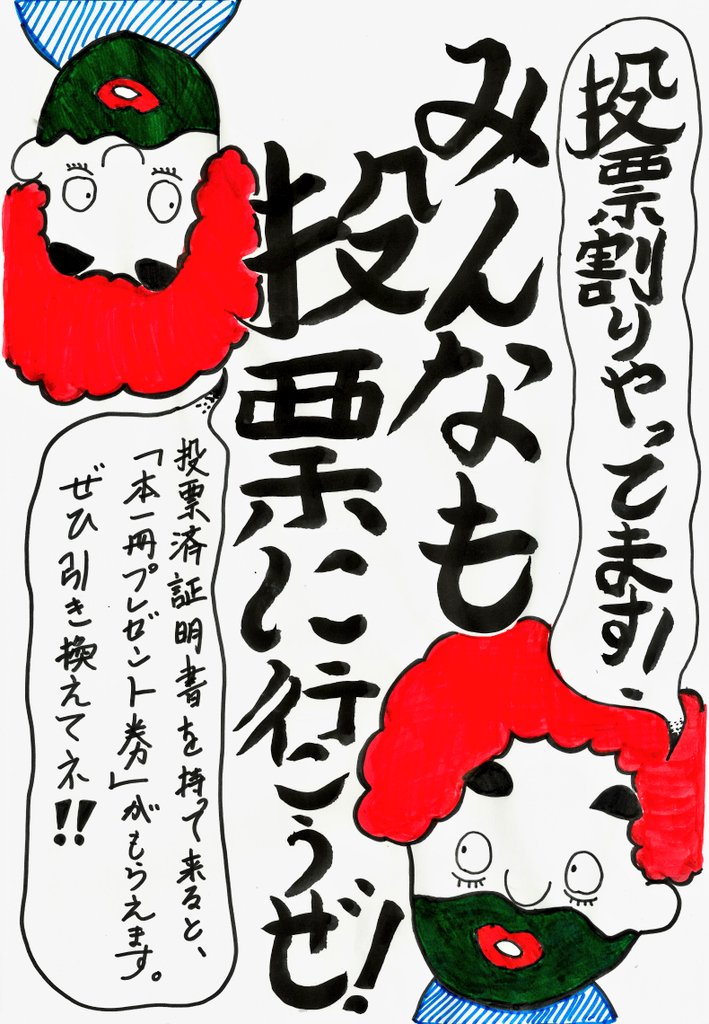 投票割りやってます!
みんなも
投票に行こうぜ!
投票済証明書を持って来ると、
「本一冊プレゼント券」がもらえます。
ぜひ引き換えてネ!!